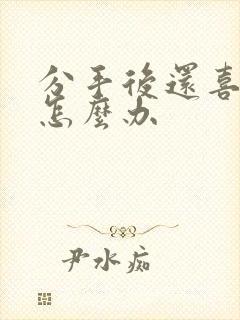 分手後還喜
怎麼办
尹水痴